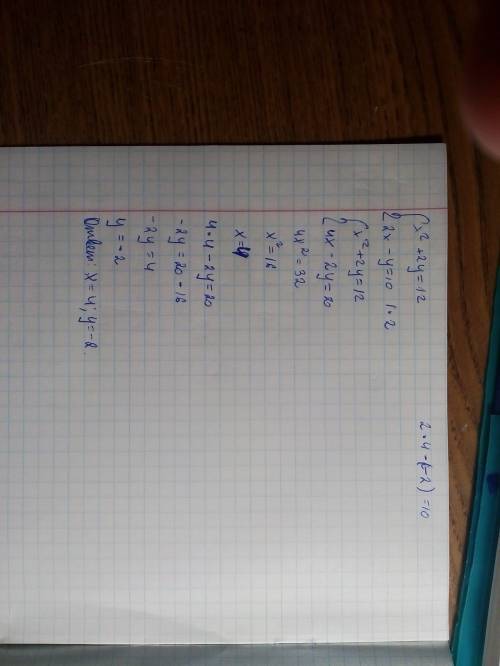 {x²+2y=12
{2x-y=10 |·2
{x²+2y=12
{4x-2y=20
4x²=32
x²=16
x=4
4·4-2y=20
-2y=20-16
-2y=4
y=-2
Ответ: x=4; y=-2.
2·4-(-2)=10